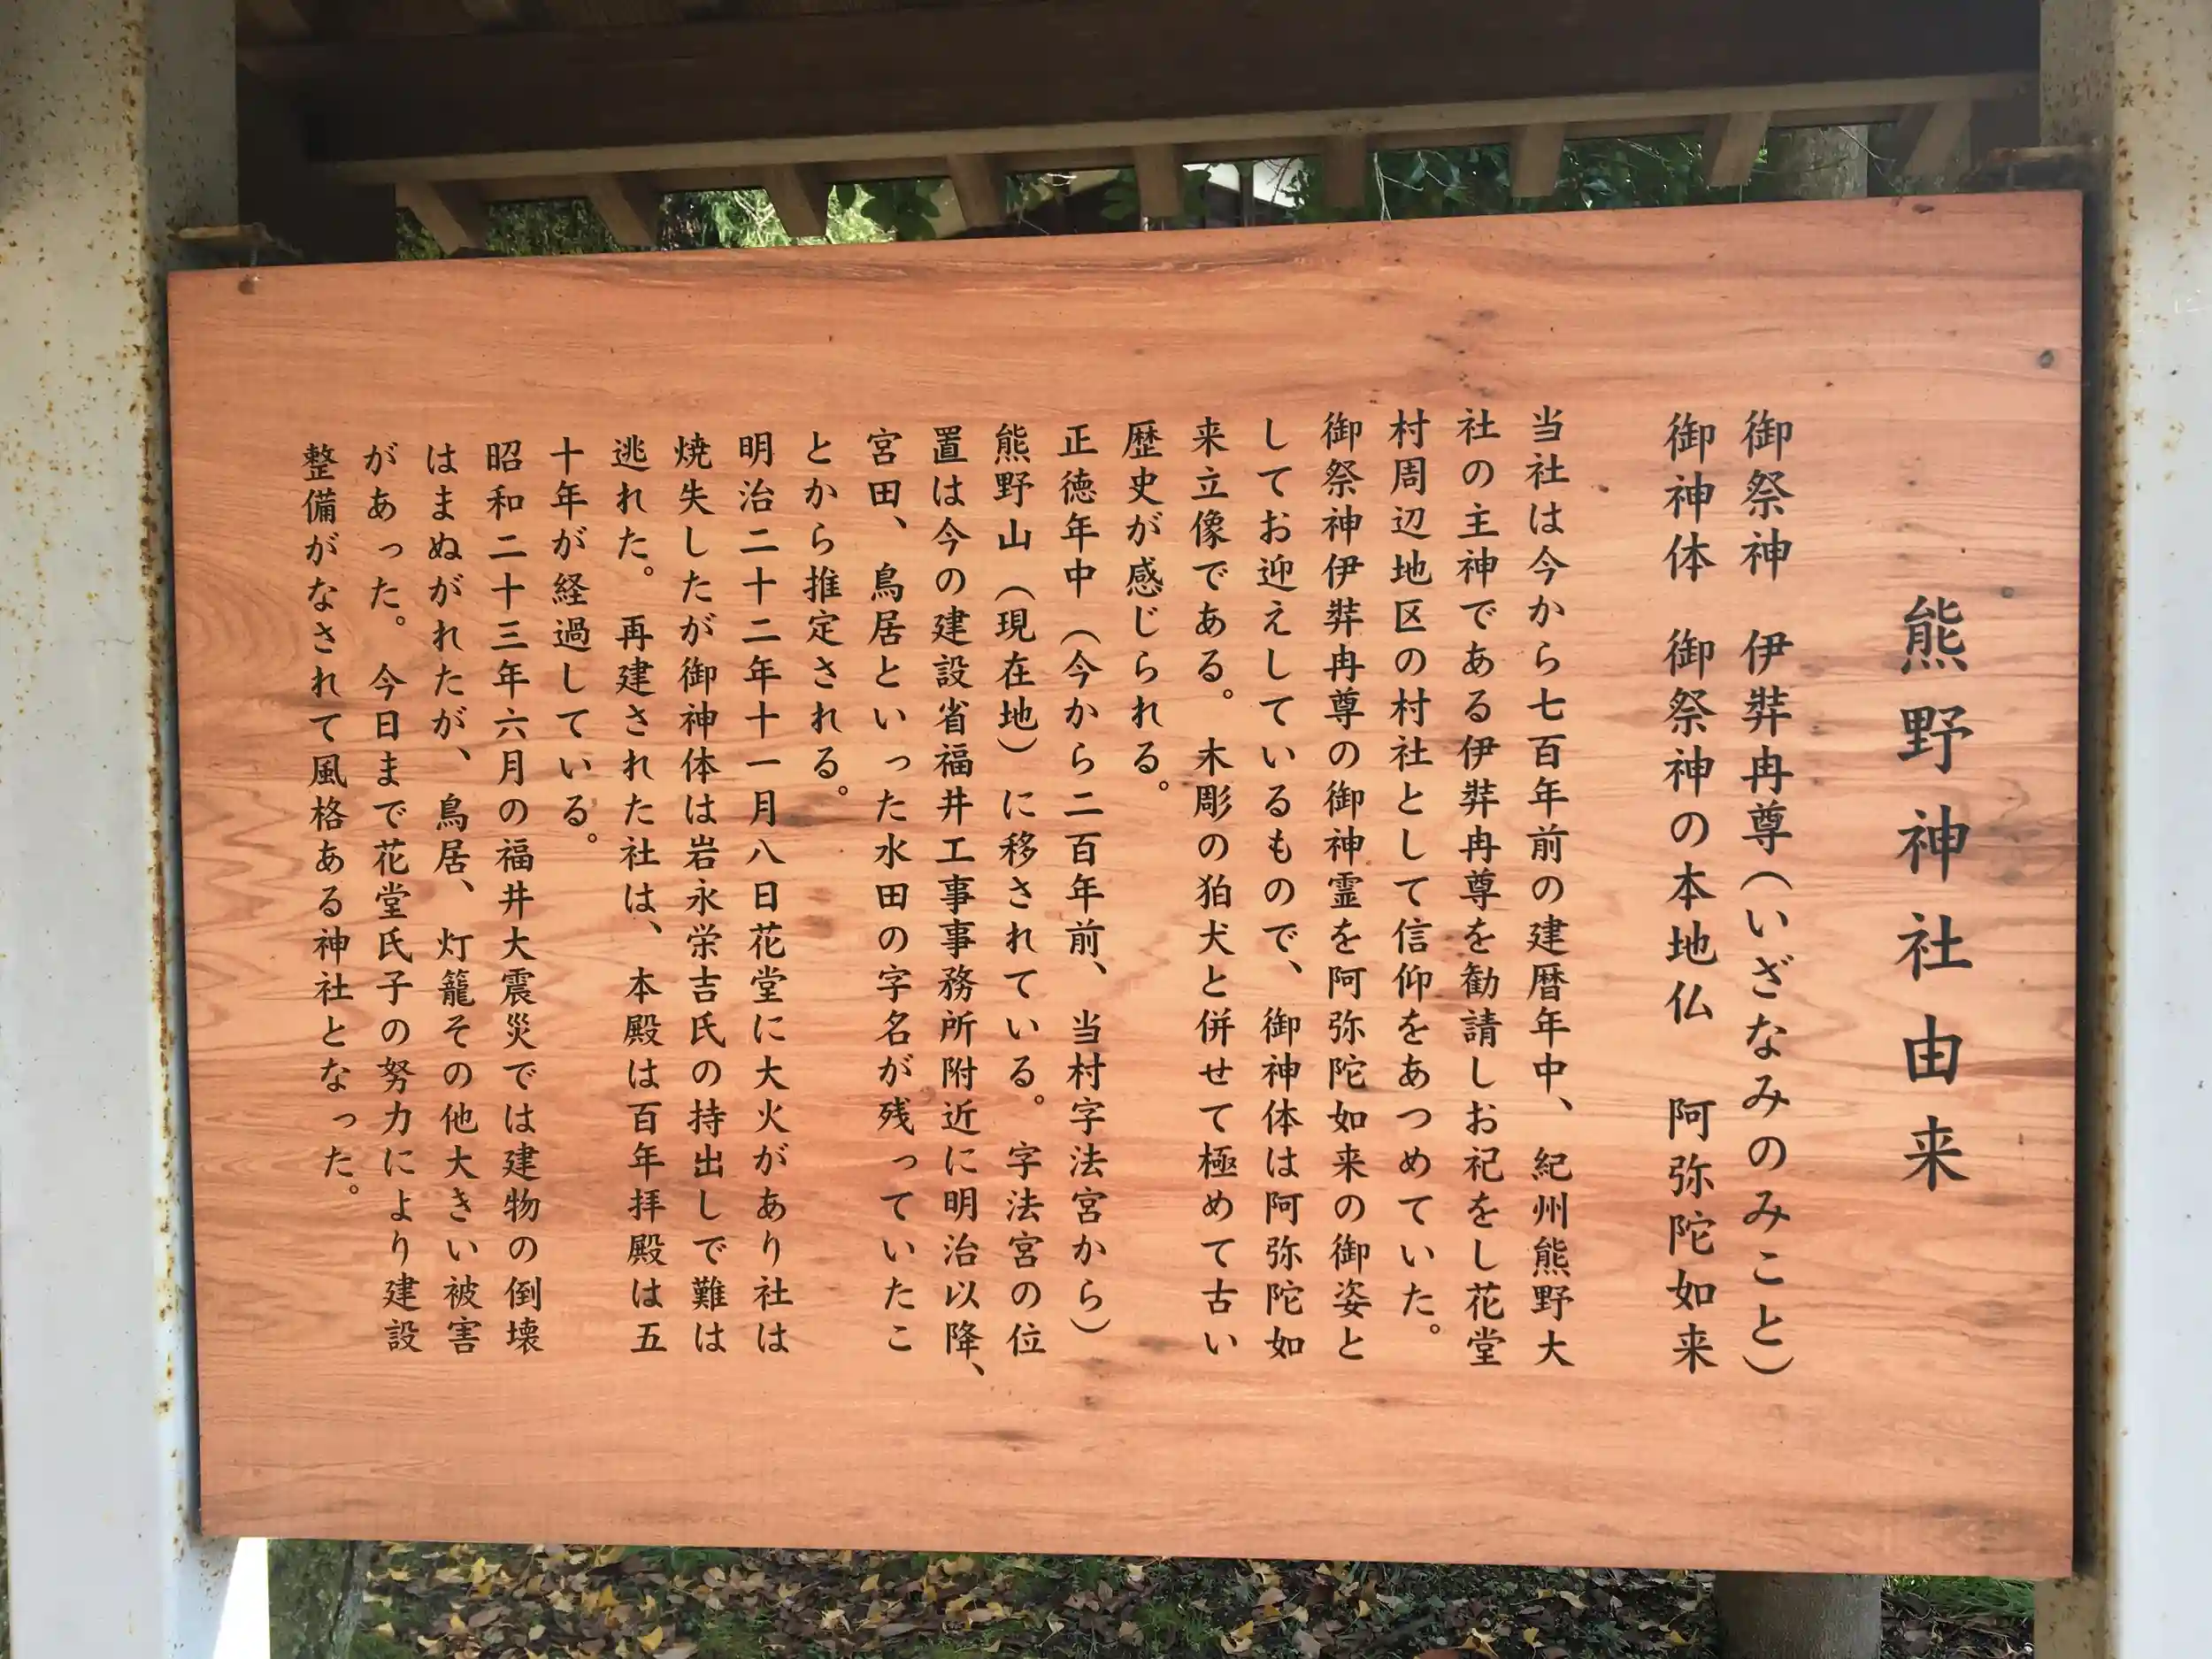 熊野神社由来
御祭神　伊弉冉尊（いざなみのみこと）
御神体　御祭神の本地仏　阿弥陀如来
当社は今から七百年前の建暦年中、紀州熊野大
社の主神である伊弉冉尊を勧請しお祀をし花堂
村周辺地区の村社として信仰をあつめていた。
御祭神伊弉冉尊の御神霊を阿弥陀如来の御姿と
してお迎えしているもので、御神体は阿弥陀如
来立像である。木彫の狛犬と併せて極めて古い
歴史が感じられる。
正徳年中（今から二百年前、当村字法宮から）
熊野山（現在地）に移されている。字法宮の位
置は今の建設省福井工事事務所附近に明治以降、
宮田、鳥居といった水田の字名が残っていたこ
とから推定される。
明治二十二年十一月八日花堂に大火があり社は
焼失したが御神体は岩永栄吉氏の持出しで難は
逃れた。再建された社は、本殿は百年拝殿は五
十年が経過している。
昭和二十三年六月の福井大震災では建物の倒壊
はまぬがれたが、鳥居、灯籠その他大きい被害
があった。今日まで花堂氏子の努力により建設
整備がなされて風格ある神社となった。